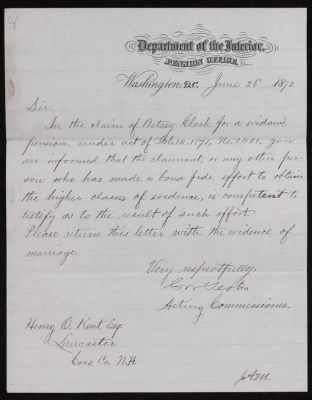 Department of the Interior,
PENSION OFFICE,
Washington, D.C. June 26 187
Sir:
In the claim of Betsey Clash for a widow's
pension, under act of Feb. 14. 1871, No. you
are informed that the claimant, or any other per-
son who has made a bona fide effort to obtain
the higher classes of evidence, is competent to
testify as to the result of such effort.
Please return this letter with the evidence of
marriage.
Very respectfully,
Acting Commissioner.
Henry O. Kent Esq.
Lancaster
Coos Co. N.H.